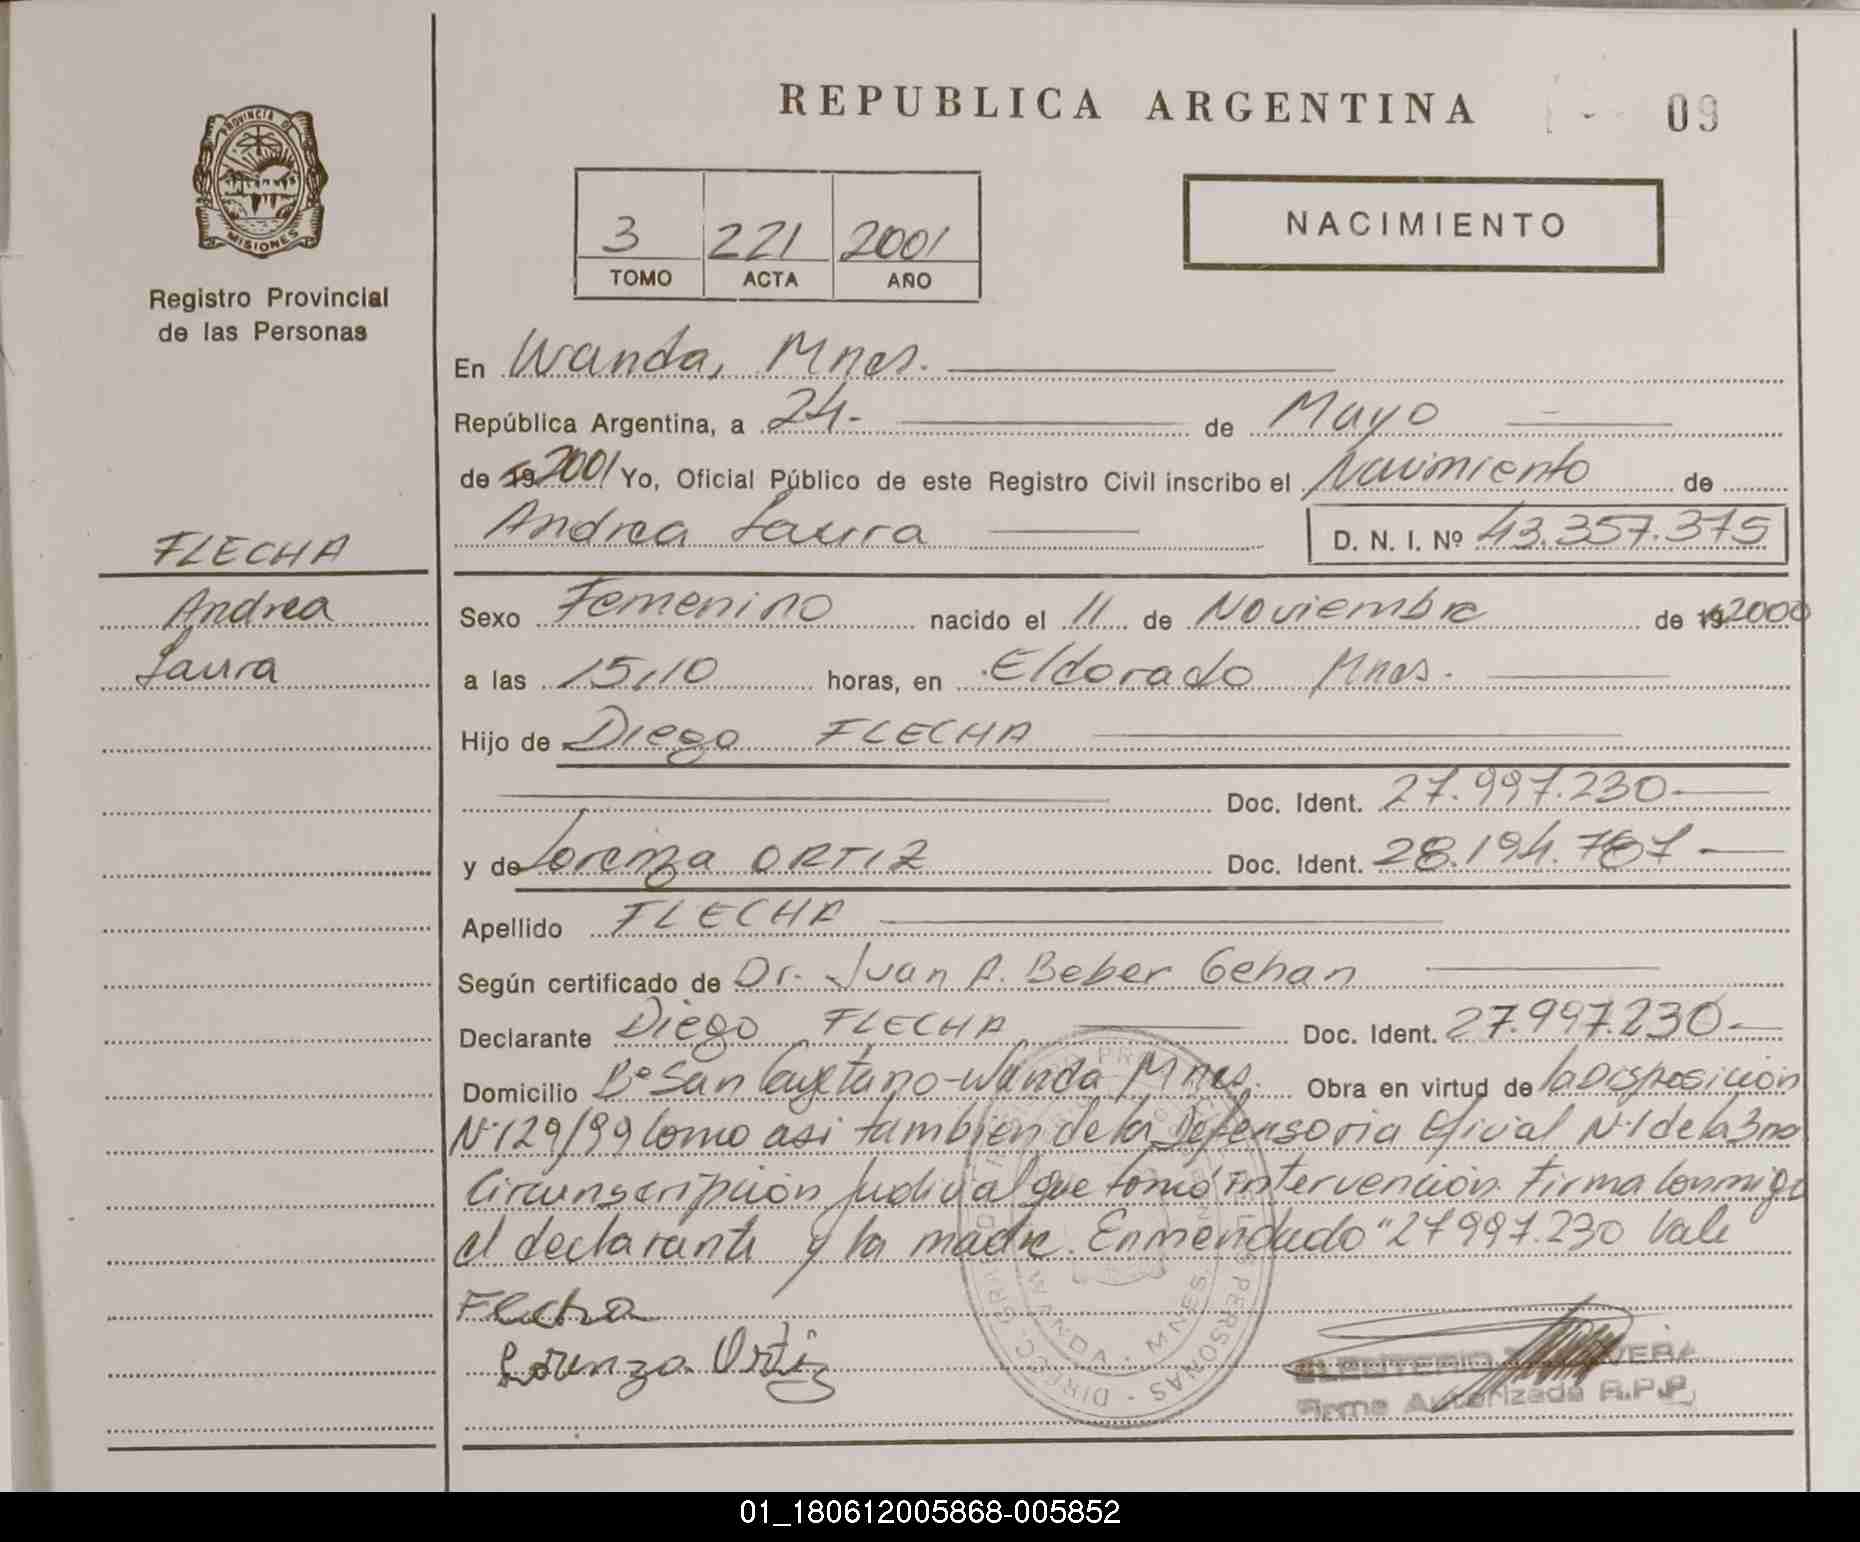 REPUBLICA ARGENTINA
09
PROVINCIA DE
MISIONES
Registro Provincial
de las Personas
3 221 2001
TOMO ACTA AÑO
NACIMIENTO
En Wanda, Mnes.
República Argentina, a 24- de Mayo
de 19 2001 Yo, Oficial Público de este Registro Civil inscribo el Nacimiento de
Andrea Laura D. N. I. Nº 43.357.375
FLECHA
Andrea
Laura
Sexo Femenino nacido el 11 de Noviembre de 19 2000
a las 15,10 horas, en Eldorado Mnes.
Hijo de Diego FLECHA
Doc. Ident. 27.997.230
y de Lorenza ORTIZ Doc. Ident. 28.194.787
Apellido FLECHA
Según certificado de Dr. Juan A. Beber Gehan
Declarante Diego FLECHA Doc. Ident. 27.997.230
Domicilio Bº San Cayetano-Wanda Mnes. Obra en virtud de la Disposición
Nº129/99 como asi tambien de la Defensoria Oficial Nº1 de la 3ra
Circunscripción Judicial que tomó intervención. Firma conmigo
el declarante y la madre. Enmendado "27997.230 Vale
Flecha
Lorenza Ortiz
WANDA - MNES.
PERSONAS - DIRECC. GRAL.
Firma Autorizada R.P.P.
01_180612005868-005852